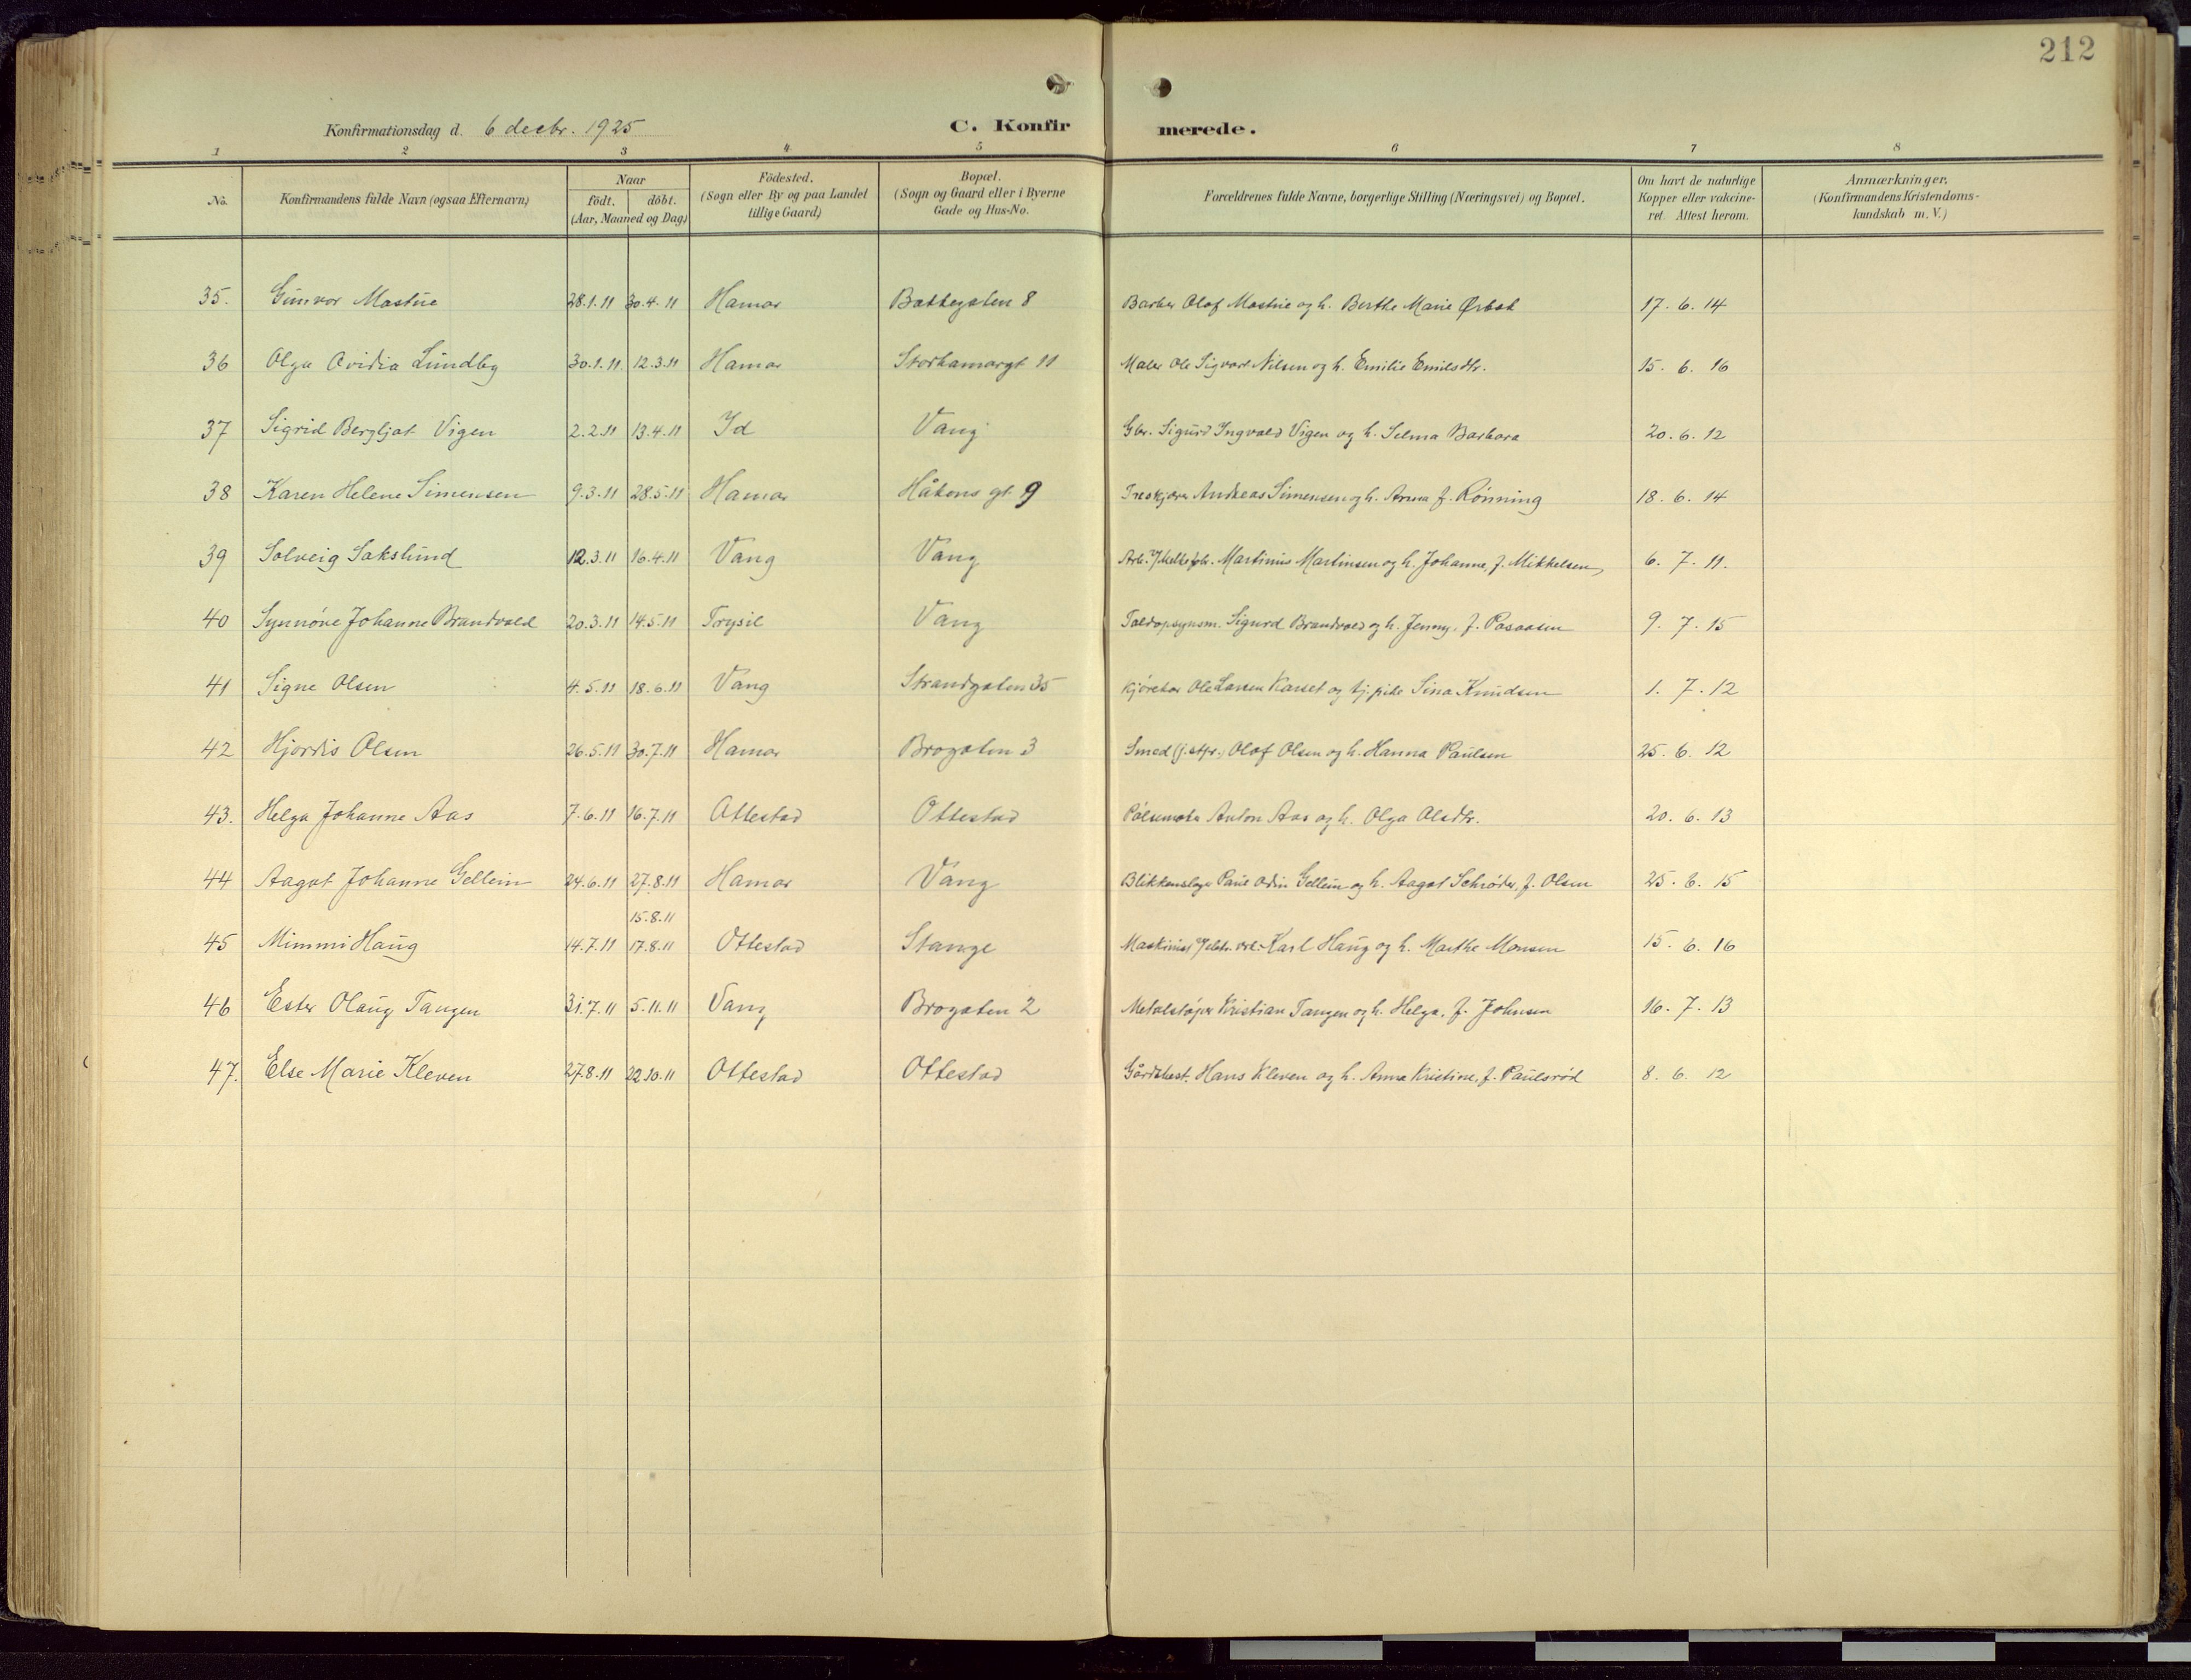 212
Konfirmationsdag d. 6 decbr. 1925 C. Konfir merede.
1 2 3 4 5 6 7 8
No. Konfirmandens fulde Navn (ogsaa Efternavn) Naar födt. döbt. (Aar, Maaned og Dag) Födested. (Sogn eller By og paa Landet tillige Gaard) Bopæl. (Sogn og Gaard eller i Byerne Gade og Hus-No. Forældrenes fulde Navne, borgerlige Stilling (Næringsvei) og Bopæl. Om havt de naturlige Kopper eller vakcineret. Attest herom. Anmærkninger. (Konfirmandens Kristendomskundskab m. V.)
35. Gunvor Mastue 28.1.11 30.4.11 Hamar Bakkegaten 8 Barber Olaf Mastue og h. Berthe Marie 17. 6. 14
36 Olga Ovidia Lundby 30.1.11 12.3.11 Hamar Storhamargt 11 Maler Ole Sigvart Nilsen og h. Emilie Emilsdtr. 15. 6. 16
37 Sigrid Bergljot Vigen 2.2.11 13.4.11 Id Vang Gbr. Sigurd Ingvald Vigen og h. Selma Barbara 20. 6. 12
38 Karen Helene Simensen 9.3.11 28.5.11 Hamar Håkons gt. 9 Treskjærer Andreas Simensen og h. Anna f. Rönning 18. 6. 14
39 Solveig Sakslund 12.3.11 16.4.11 Vang Vang Arb. Martinius Martinsen og h. Johanne, f. Mikkelsen 6. 7. 11.
40 Synnöve Johanne Brandvold 20.3.11 14.5.11 Trysil Vang Toldopsynsm. Sigurd Brandvold og h. Jenny, f. 9. 7. 15
41 Signe Olsen 4.5.11 18.6.11 Vang Strandgaten 35 Kjörekar Ole Larsen Karset og tj.pike Sina Knudsen 1. 7. 12
42 Hjördis Olsen 26.5.11 30.7.11 Hamar Brogaten 3 Smed Olaf Olsen og h. Hanna Paulsen 25. 6. 12
43. Helga Johanne Aas 7.6.11 16.7.11 Ottestad Ottestad Pölsemaker Anton Aas og h. Olga Olsdtr. 20. 6. 13
44 Aagot Johanne Gellein 24.6.11 27.8.11 Hamar Vang Blikkenslager Paul Odin Gellein og h. Aagot Schröder, f. Olsen 25. 6. 15
15.8.11
45 Mimmi Haug 14.7.11 17.8.11 Ottestad Stange Maskinist Karl Haug og h. Marthe Monsen 15. 6. 16
46 Ester Olaug Tangen 31.7.11 5.11.11 Vang Brogaten 2 Metalstöper Kristian Tangen og h. Helga, f. Johnsen 16. 7. 13
47. Else Marie Kleven 27.8.11 22.10.11 Ottestad Ottestad Gårdsbest. Hans Kleven og h. Anna Kristine, f. Paulsröd 8. 6. 12